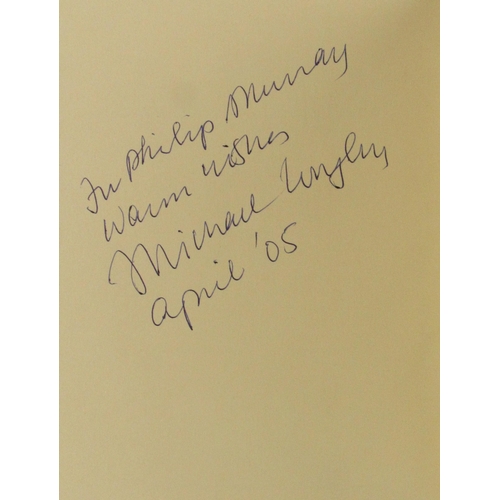 For Philip Murray
Warm wishes
Michael Longley
April '05